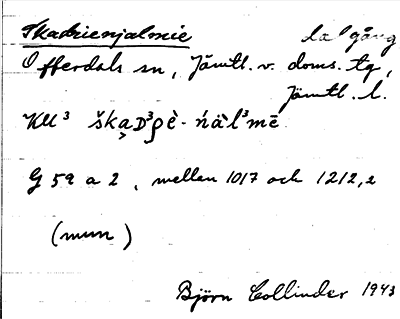 Skadrienjalmie dalgång
Offerdals sn, Jämtl. v. doms. tg,
Jämtl. l.
KU³ škḁD³ρè-ńä̀l³mē
G 59 a 2, mellan 1017 och 1212,2
(mun)
Björn Collinder 1943